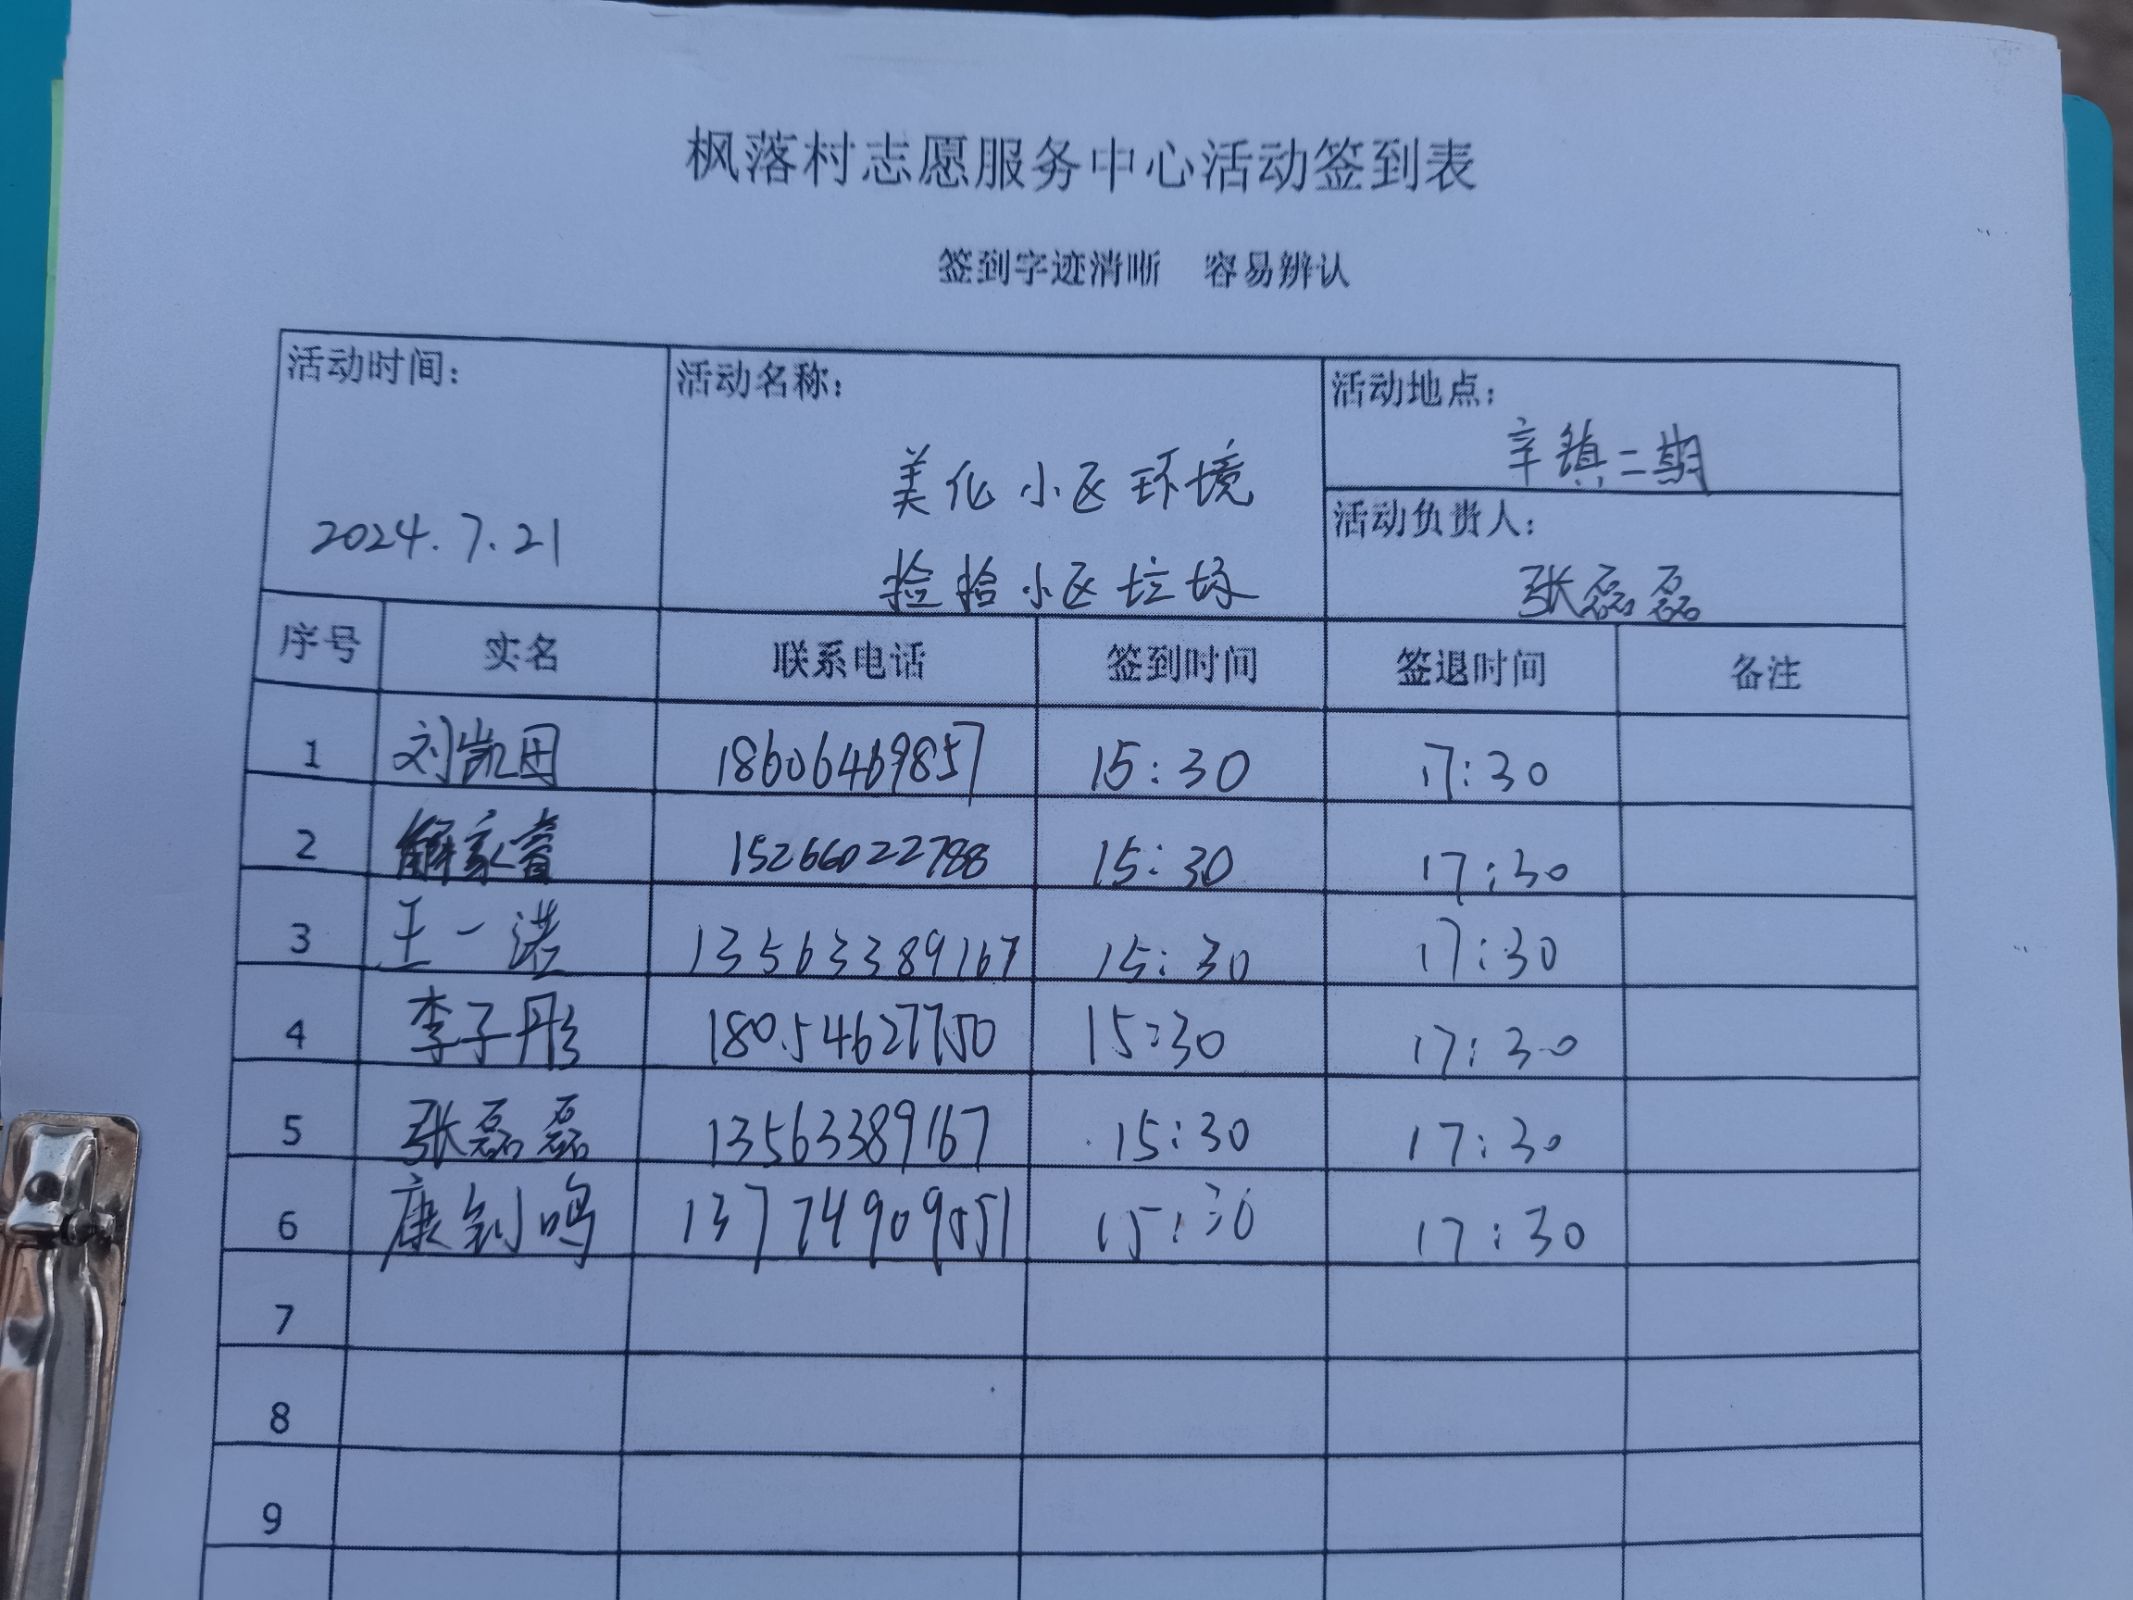 枫落村志愿服务中心活动签到表
签到字迹清晰 容易辨认
活动时间: 2024.7.21
活动名称: 美化小区环境
捡拾小区垃圾
活动地点: 辛镇二期
活动负责人: 张磊磊
序号 实名 联系电话 签到时间 签退时间 备注
1 刘凯田 18606469857 15:30 17:30
2 解家睿 15266022788 15:30 17:30
3 王一诺 13563389167 15:30 17:30
4 李子彤 18054627750 15:30 17:30
5 张磊磊 13563389167 15:30 17:30
6 康钊鸣 13774909051 15:30 17:30
7
8
9